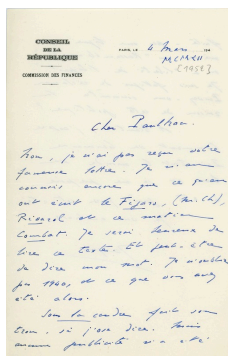 CONSEIL
DE LA
RÉPUBLIQUE
COMMISSION DES FINANCES
PARIS, LE 4 Mars 194
MCMLII
[1952]
Cher Paulhan,
Non, je n'ai pas reçu votre
fameuse lettre. Je n'en
connais encore que ce qu'en
ont écrit le Figaro,
Rivarol et ce matin
Combat. Je serai heureux de
lire ce texte. Et peut-être
de dire mon mot. Je n'oublie
pas 1940, et ce que vous avez
été alors.
Sous la cendre fait son
trou, si j'ose dire. Mais
aucune publicité n'a été